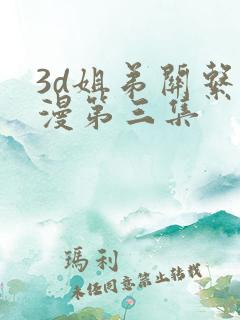 3d姐弟関繫
漫第三集
瑪利
未经同意禁止转载